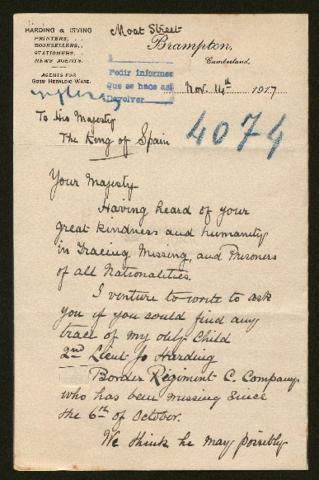 HARDING & IRVING
PRINTERS,
BOOKSELLERS,
STATIONERS,
NEWS AGENTS.
AGENTS FOR
GOSS HERALDIC WARE.
Moat Street
Brampton,
Cumberland.
Pedir informes
Que se haos asi
Devolver
Nov. 14th 1917
To His Majesty
The King of Spain
4074
Your Majesty
Having heard of your
great kindness and humanity
in Tracing Missing, and Prisoners
of all Nationalities.
I venture to write to ask
you if you could find any
trace of my only Child
2nd Lieut Jo Harding
Border Regiment C. Company,
who has been missing since
the 6th of October.
We think he may possibly